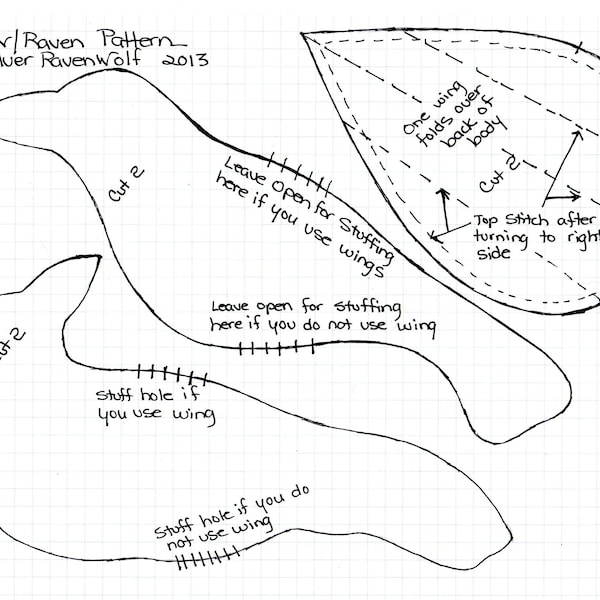 r/Raven Pattern
lver RavenWolf 2013
Cut 2
Leave Open for Stuffing
here if you use wings
Leave open for stuffing
here if you do not use wing
One wing
folds over
back of
body
Cut 2
Top Stitch after
turning to right
side
Cut 2
Stuff hole if
you use wing
Stuff hole if you do
not use wing